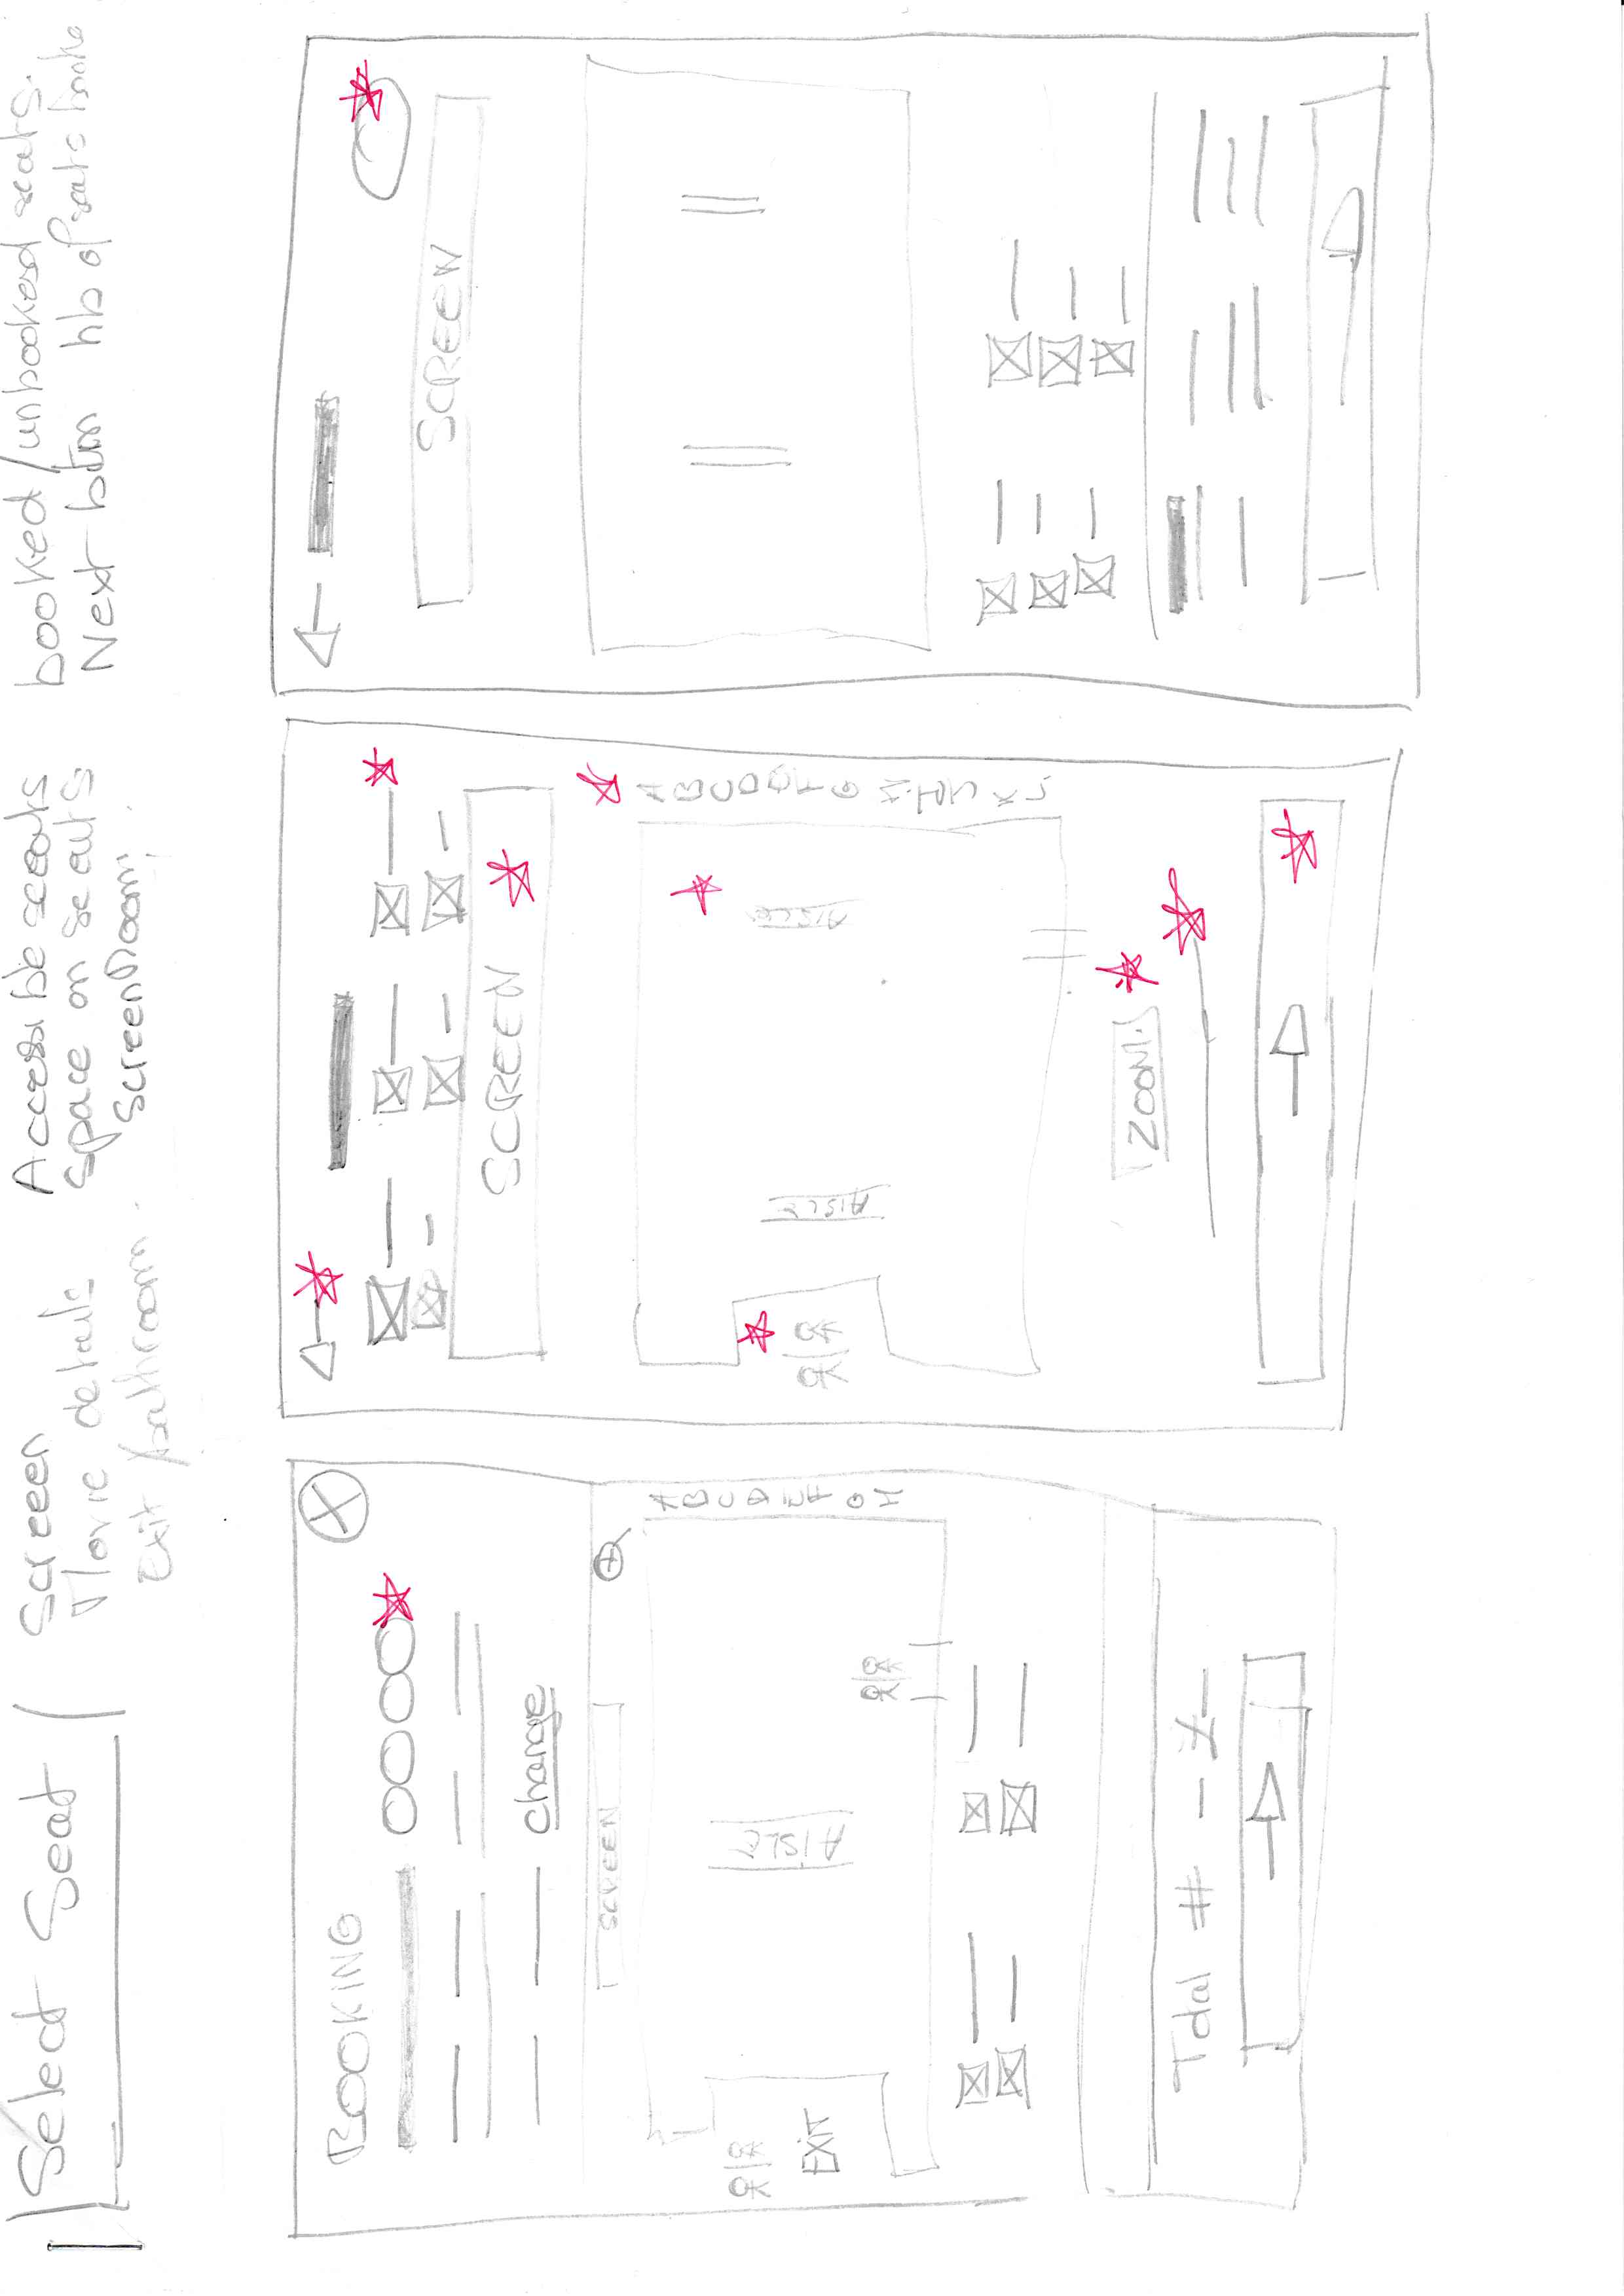 Select Seat
Screeen
Movie details
Exit /bathroom
Accessible seats
space on seats
Screen Room
booked / unbooked seats.
Next btn nb of seats
BOOKING
change
SCREEN
A
B
C
D
E
F
G
H
EXIT
AISLE
Total #
SCREEN
A
B
C
D
F
G
K
L
AISLE
AISLE
ZOOM
SCREEN